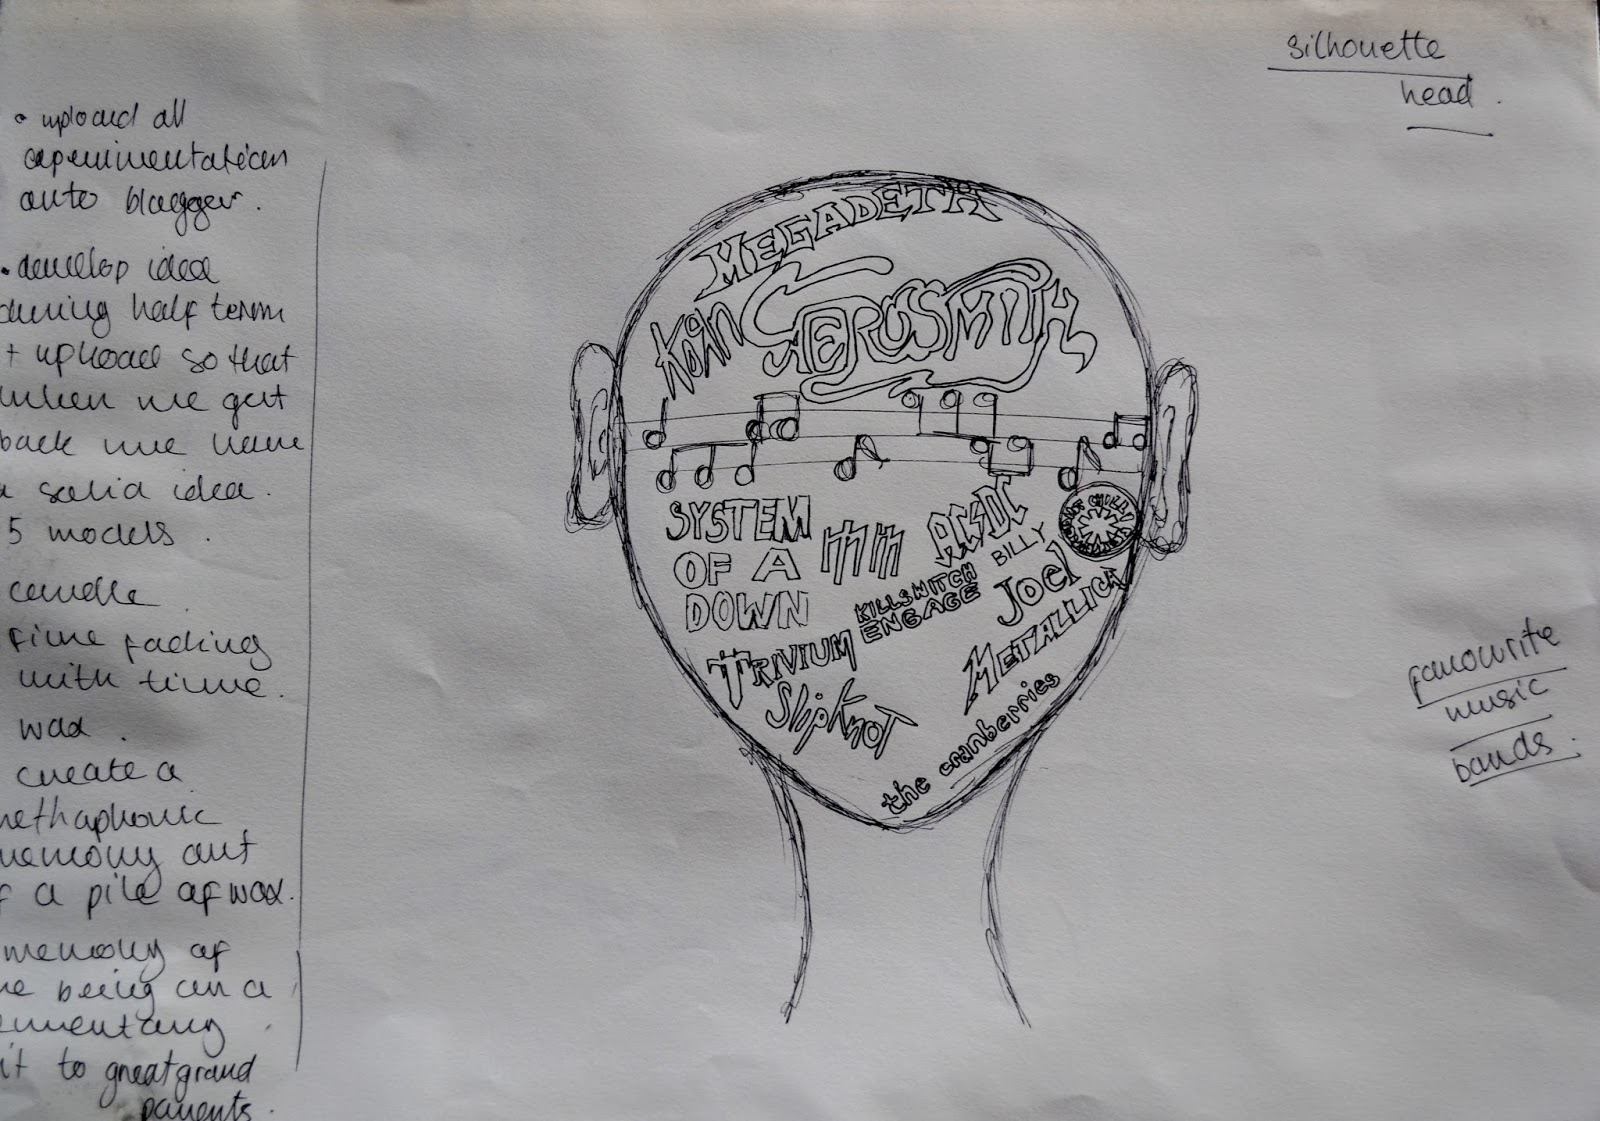 silhouette
head.
• upload all
experimentation
onto blogger.
• develop idea
during half term
+ upload so that
when we get
back we have
a solid idea.
5 models.
candle.
time fading
with time.
wax.
create a
methaphoric
memory out
of a pile of wax.
memory of
me being on a
it to greatgrand
parents.
MEGADETH
KoRn
AEROSMITH
SYSTEM
OF A
DOWN
AC/DC
BILLY
Joel
RED HOT CHILLI PEPPERS
KILLSWITCH
ENGAGE
METALLICA
TRIVIUM
SlipKnoT
the cranberries
favourite
music
bands.